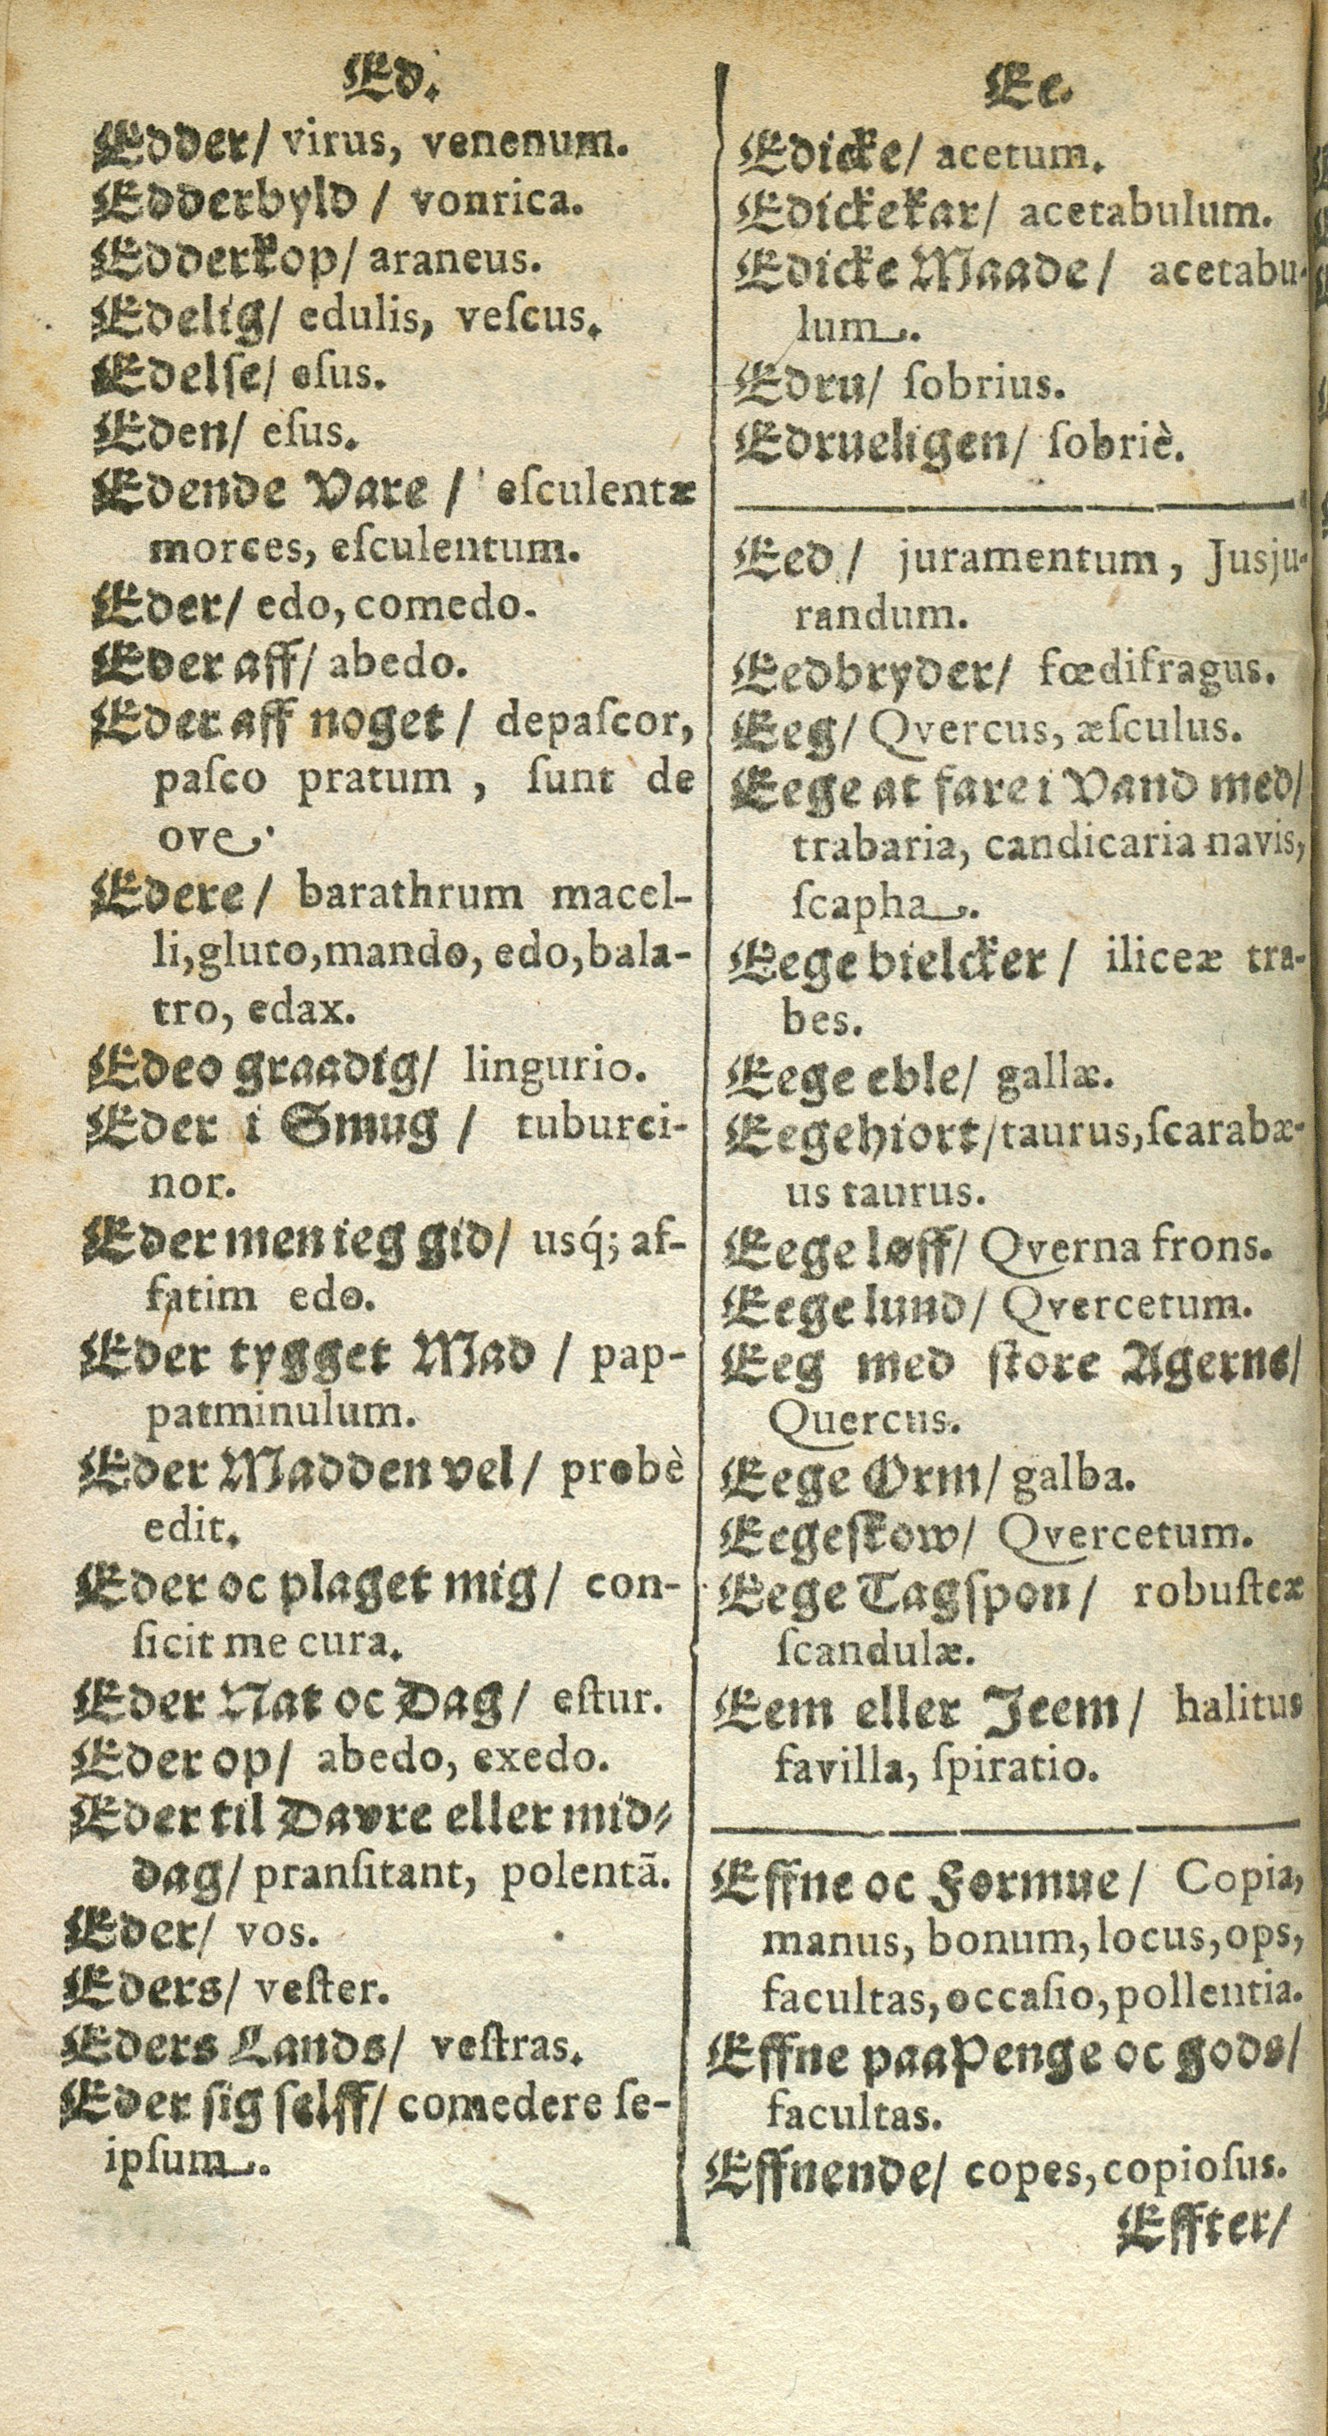 Ed.
Edder/ virus, venenum.
Edderbyld / vonrica.
Edderkop/ araneus.
Edelig/ edulis, veſcus.
Edelſe/ eſus.
Eden/ eſus.
Edende Vare / eſculentæ
morces, eſculentum.
Eder/ edo, comedo.
Eder aff/ abedo.
Eder aff noget / depaſcor,
paſco pratum , ſunt de
ove.
Edere/ barathrum macel-
li, gluto, mando, edo, bala-
tro, edax.
Edeo graadig/ lingurio.
Eder i Smug / tuburci-
nor.
Eder men ieg gid/ usq́; af-
fatim edo.
Eder tygget Mad / pap-
patminulum.
Eder Madden vel/ probè
edit.
Eder oc plaget mig/ con-
ficit me cura.
Eder Nat oc Dag/ eſtur.
Eder op/ abedo, exedo.
Eder til Davre eller mid-
dag/ pranſitant, polentã.
Eder/ vos.
Eders/ veſter.
Eders Lands/ veſtras.
Eder ſig ſelff/ comedere ſe-
ipſum.
Ee.
Edicke/ acetum.
Edickekar/ acetabulum.
Edicke Maade/ acetabu-
lum.
Edru/ ſobrius.
Edrueligen/ ſobriè.
Eed/ juramentum, Jusju-
randum.
Eedbryder/ fœdifragus.
Eeg/ Qvercus, æſculus.
Eege at fare i Vand med/
trabaria, candicaria navis,
ſcapha.
Eege bielcker/ iliceæ tra-
bes.
Eege eble/ gallæ.
Eegehiort/ taurus, ſcarabæ-
us taurus.
Eege løff/ Qverna frons.
Eege lund/ Qvercetum.
Eeg med ſtore Agerne/
Quercus.
Eege Orm/ galba.
Eegeſkow/ Qvercetum.
Eege Tagſpon/ robuſteæ
ſcandulæ.
Eem eller Jeem/ halitus
favilla, ſpiratio.
Effne oc Formue/ Copia,
manus, bonum, locus, ops,
facultas, occaſio, pollentia.
Effne paa Penge oc gods/
facultas.
Effnende/ copes, copioſus.
Effter/